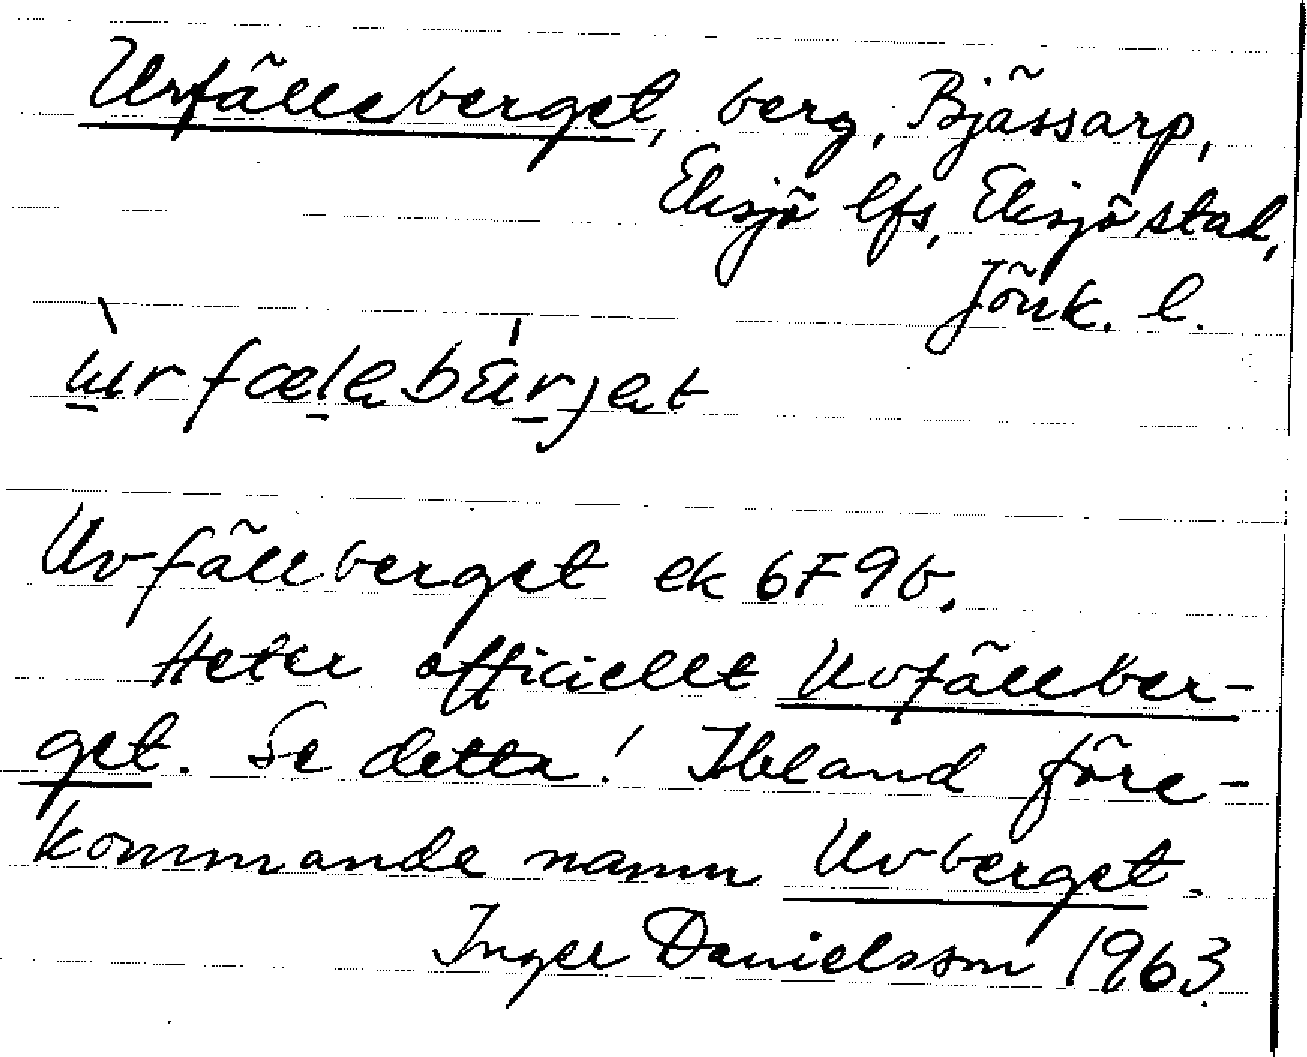 Urfälleberget, berg, Bjässarp,
Eksjö lfs, Eksjö stad,
Jönk. l.
ùrfælebärjet
Uvfällberget ek 6F9b.
Heter officiellt Uvfällber-
get. Se detta! Ibland före-
kommande namn Uvberget.
Inger Danielsson 1963